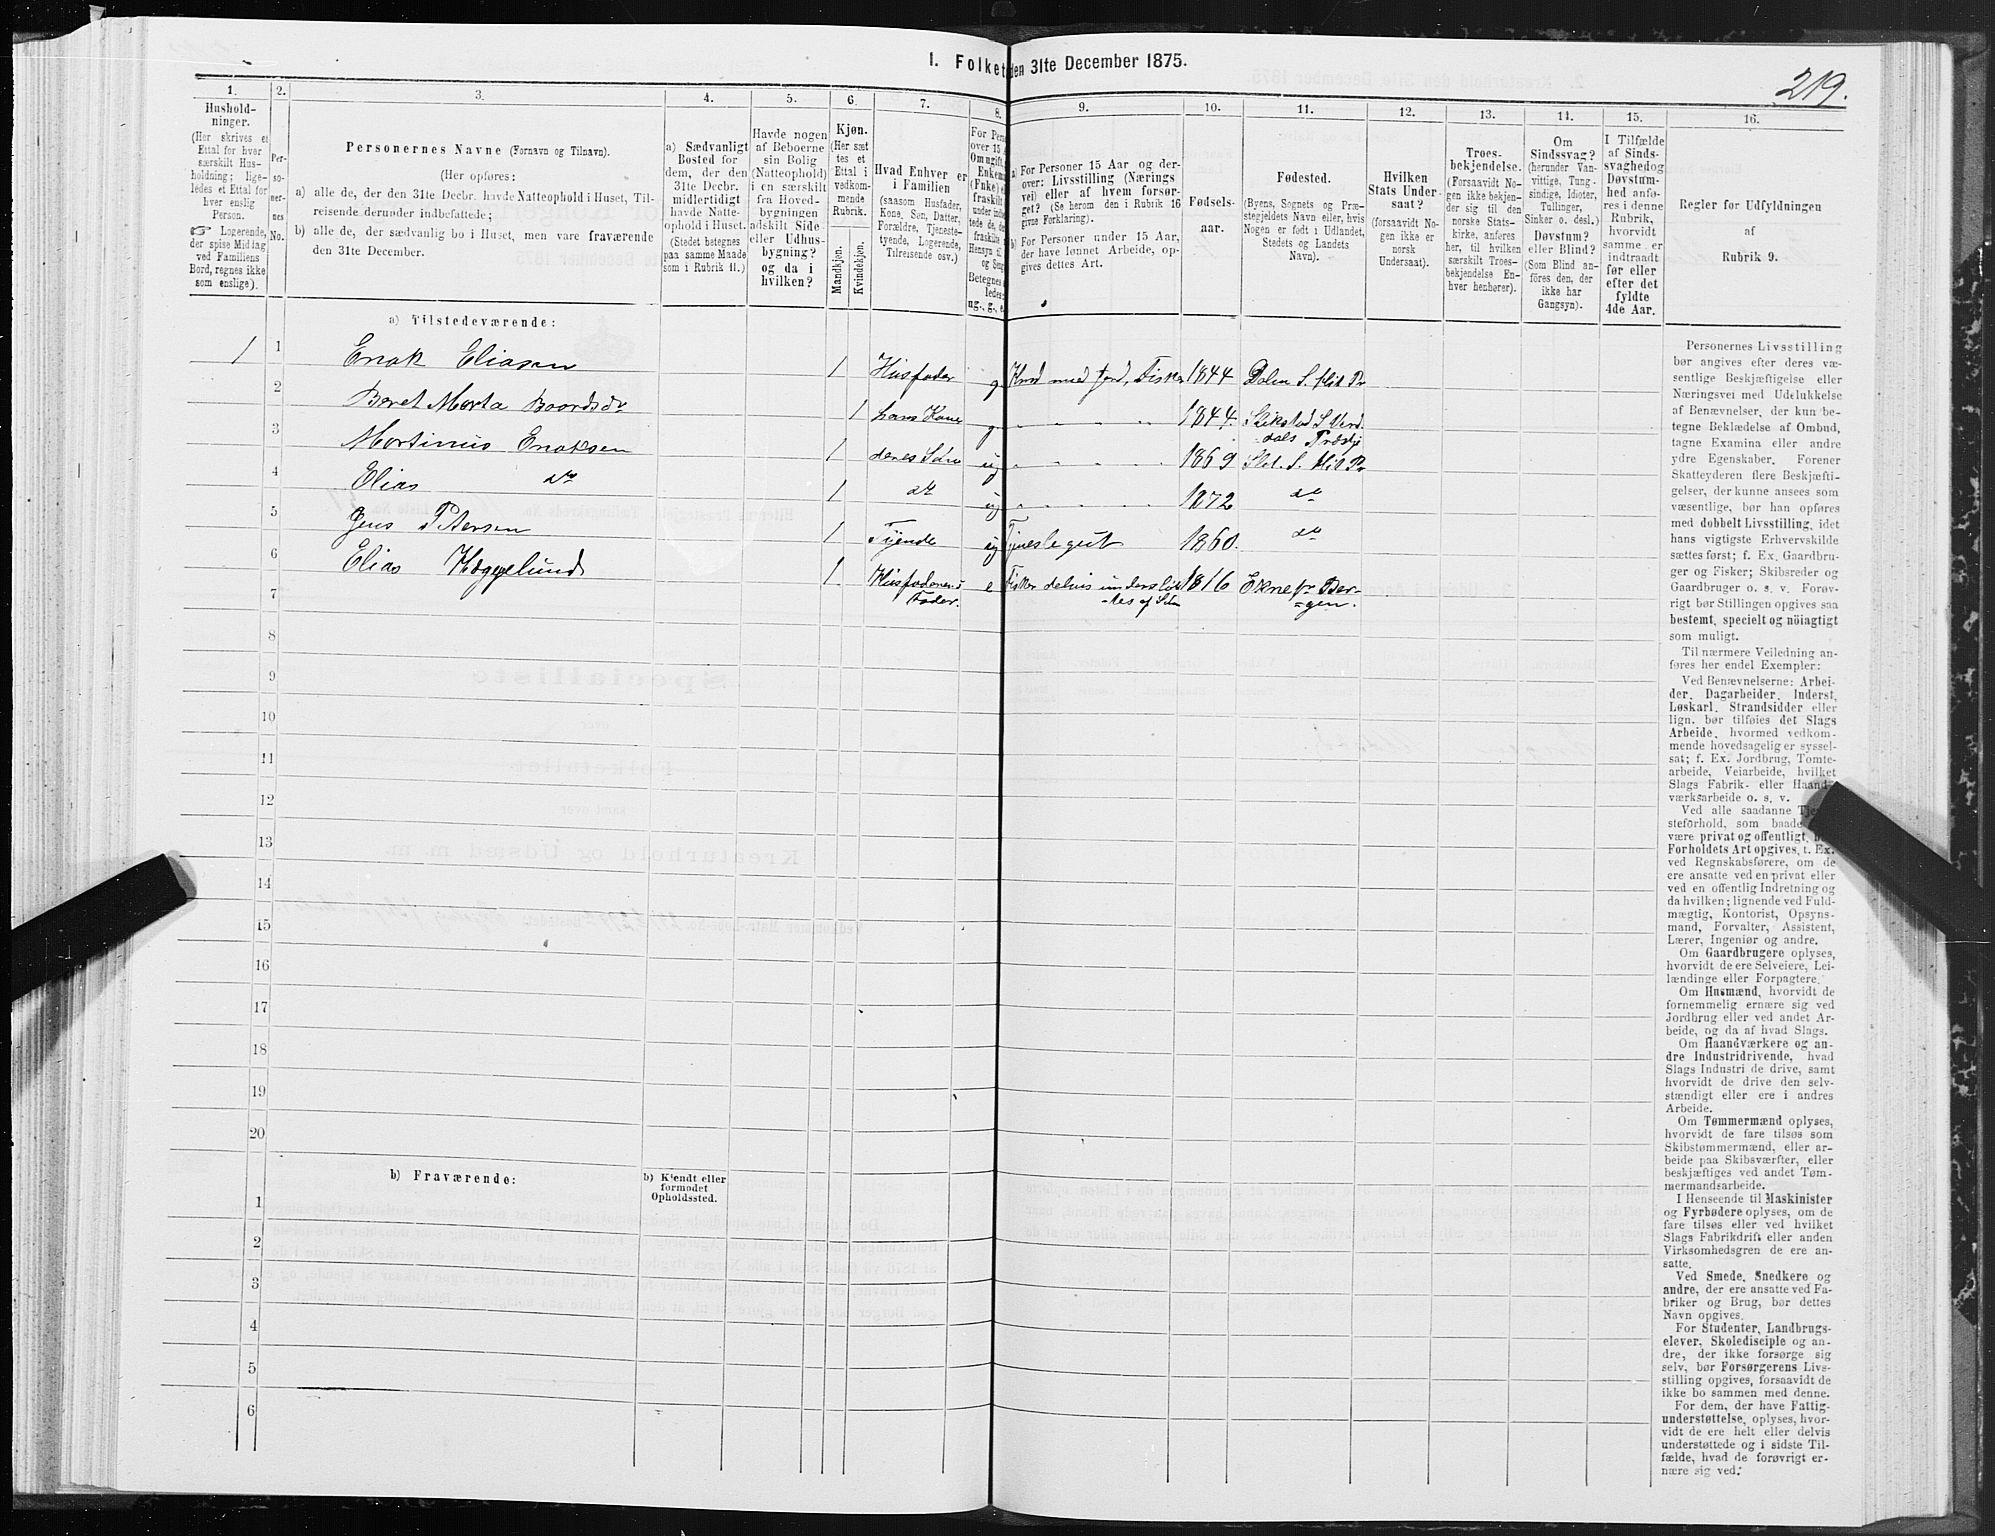 219.
I. Folket den 31te December 1875.
1. 2. 3. 4. 5. 6. 7. 8. 9. 10. 11. 12. 13. 14. 15. 16.
Hushold-
ninger.
(Her skrives et
Ettal for hver
særskilt Hus-
holdning; lige-
ledes et Ettal for
hver enslig
Person.
☞ Logerende,
der spise Middag
ved Familiens
Bord, regnes ikke
som enslige).
Per-
so-
ner-
nes
No.
Personernes Navne (Fornavn og Tilnavn).
(Her opføres:
a) alle de, der den 31te Decbr. havde Natteophold i Huset, Til-
reisende derunder indbefattede;
b) alle de, der sædvanlig bo i Huset, men vare fraværende
den 31te December.
a) Sædvanligt
Bosted for
dem, der den
31te Decbr.
midlertidigt
havde Natte-
ophold i Huset.
(Stedet betegnes
paa samme Maade
som i Rubrik 11.)
Havde nogen
af Beboerne
sin Bolig
(Natteophold)
i en særskilt
fra Hoved-
bygningen
adskilt Side-
eller Udhus-
bygning?
og da i
hvilken?
Kjøn.
(Her sæt
tes et
Ettal i
vedkom-
mende
Rubrik.
Mandkjøn.
Kvindekjøn.
Hvad Enhver er
i Familien
(saasom Husfader,
Kone, Søn, Datter,
Forældre, Tjeneste-
tyende, Logerende,
Tilreisende osv.)
For Pers
over 15 A
Om ugift,
Enkem
(Enke) e
fraskilt
Betegnes
ledes:
ug., g., e.
a) For Personer 15 Aar og der-
over: Livsstilling (Nærings
vei) eller af hvem forsør-
get? (Se herom den i Rubrik 16
givne Forklaring).
b) For Personer under 15 Aar,
der have lønnet Arbeide, op-
gives dettes Art.
Fødsels-
aar.
Fødested.
(Byens, Sognets og Præ-
stegjeldets Navn eller, hvis
Nogen er født i Udlandet,
Stedets og Landets
Navn).
Hvilken
Stats Under-
saat?
(forsaavidt No-
gen ikke er
norsk
Undersaat).
Troes-
bekjendelse.
(Forsaavidt No-
gen ikke bekjen-
der sig til den
norske Stats-
kirke, anføres
her, til hvilken
særskilt Troes-
bekjendelse En-
hver henhører).
Om
Sindssvag?
(herunder Van-
vittige, Tung-
sindige, Idioter,
Tullinger,
Sinker o. desl.)
Døvstum?
eller Blind?
(Som Blind an-
føres den, der
ikke har
Gangsyn).
I Tilfælde
af Sinds-
svaghed og
Døvstum-
hed anfø-
res i denne
Rubrik,
hvorvidt
samme er
indtraadt
før eller
efter det
fyldte
4de Aar.
Regler for Udfyldningen
af
Rubrik 9.
a) Tilstedeværende:
1 1 Enok Eliasen 1 Husfader g Husd med Jord, Fisker 1844 Dolm S. Hit Pr
2 Beret Marta Baardsdr 1 hans Kone g 1844 Stikstad S Verd
dals Præstgj
3 Martinus Enoksen 1 deres Søn ug 1869 S. Hit Pr
4 Elias do 1 do ug 1872 do
5 Jens Petersen 1 Tyende ug Tjenestegut 1860. do
6 Elias Hæggelund 1 Husfaderens e Fisker delvis understøt 1816
Fader. -tes af Søn Ber-
7 =gen.
8
9
10
11
12
13
14
15
16
17
18
19
20
b) Fraværende:
b) Kjendt eller
formodet
Opholdssted.
1
2
3
4
5
6
Personernes Livsstilling
bør angives efter deres væ-
sentlige Beskjæftigelse eller
Næringsvei med Udelukkelse
af Benævnelser, der kun be-
tegne Beklædelse af Ombud,
tagne Examina eller andre
ydre Egenskaber. Forener
Skatteyderen flere Beskjæfti-
gelser, der kunne ansees som
væsentlige, bør han opføres
med dobbelt Livsstilling, idet
hans vigtigste Erhvervskilde
sættes først; f. Ex. Gaardbru-
ger og Fisker; Skibsreder og
Gaardbruger o. s. v. Forøv-
rigt bør Stillingen opgives saa
bestemt, specielt og nöiagtigt
som muligt.
Til nærmere Veiledning an-
føres her endel Exempler:
Ved Benævnelserne: Arbei-
der, Dagarbeider, Inderst,
Løskarl, Strandsidder eller
lign. bør tilføies det Slags
Arbeide, hvormed vedkom-
mende hovedsagelig er syssel-
sat; f. Ex. Jordbrug, Tomte-
arbeide, Veiarbeide, hvilket
Slags Fabrik- eller Haand-
værksarbeide o. s. v.
Ved alle saadanne Tje
steforhold, som baade
være privat og offentligt,
Forholdets Art opgives, t. Ex.
ved Regnskabsførere, om de
ere ansatte ved en privat eller
ved en offentlig Indretning og
da hvilken; lignende ved Fuld-
mægtig, Kontorist, Opsyns-
mand, Forvalter, Assistent,
Lærer, Ingeniør og andre.
Om Gaardbrugere oplyses,
hvorvidt de ere Selveiere, Lei-
lændinge eller Forpagtere.
Om Husmænd, hvorvidt de
fornemmelig ernære sig ved
Jordbrug eller ved andet Ar-
beide, og da af hvad Slags.
Om Haandværkere og an-
dre Industridrivende, hvad
Slags Industri de drive, samt
hvorvidt de drive den selv-
stændigt eller ere i andres
Arbeide.
Om Tømmermænd oplyses,
hvorvidt de fare tilsøs som
Skibstømmermænd, eller ar-
beide paa Skibsværfter, eller
beskjæftiges ved andet Tøm-
mermandsarbeide.
I Henseende til Maskinister
og Fyrbødere oplyses, om de
fare tilsøs eller ved hvilket
Slags Fabrikdrift eller anden
Virksomhedsgren de ere an-
satte.
Ved Smede, Snedkere og
andre, der ere ansatte ved Fa-
briker og Brug, bør dettes
Navn opgives.
For Studenter, Landbrugs-
elever, Skoledisciple og an-
dre, der ikke forsørge sig
selv, bør Forsørgerens Livs-
stilling opgives, forsaavidt de
ikke bo sammen med denne.
For dem, der have Fattig-
understøttelse, oplyses, hvor-
vidt de ere helt eller delvis
understøttede og i sidste Til-
fælde, hvad de forøvrigt er-
nære sig ved.